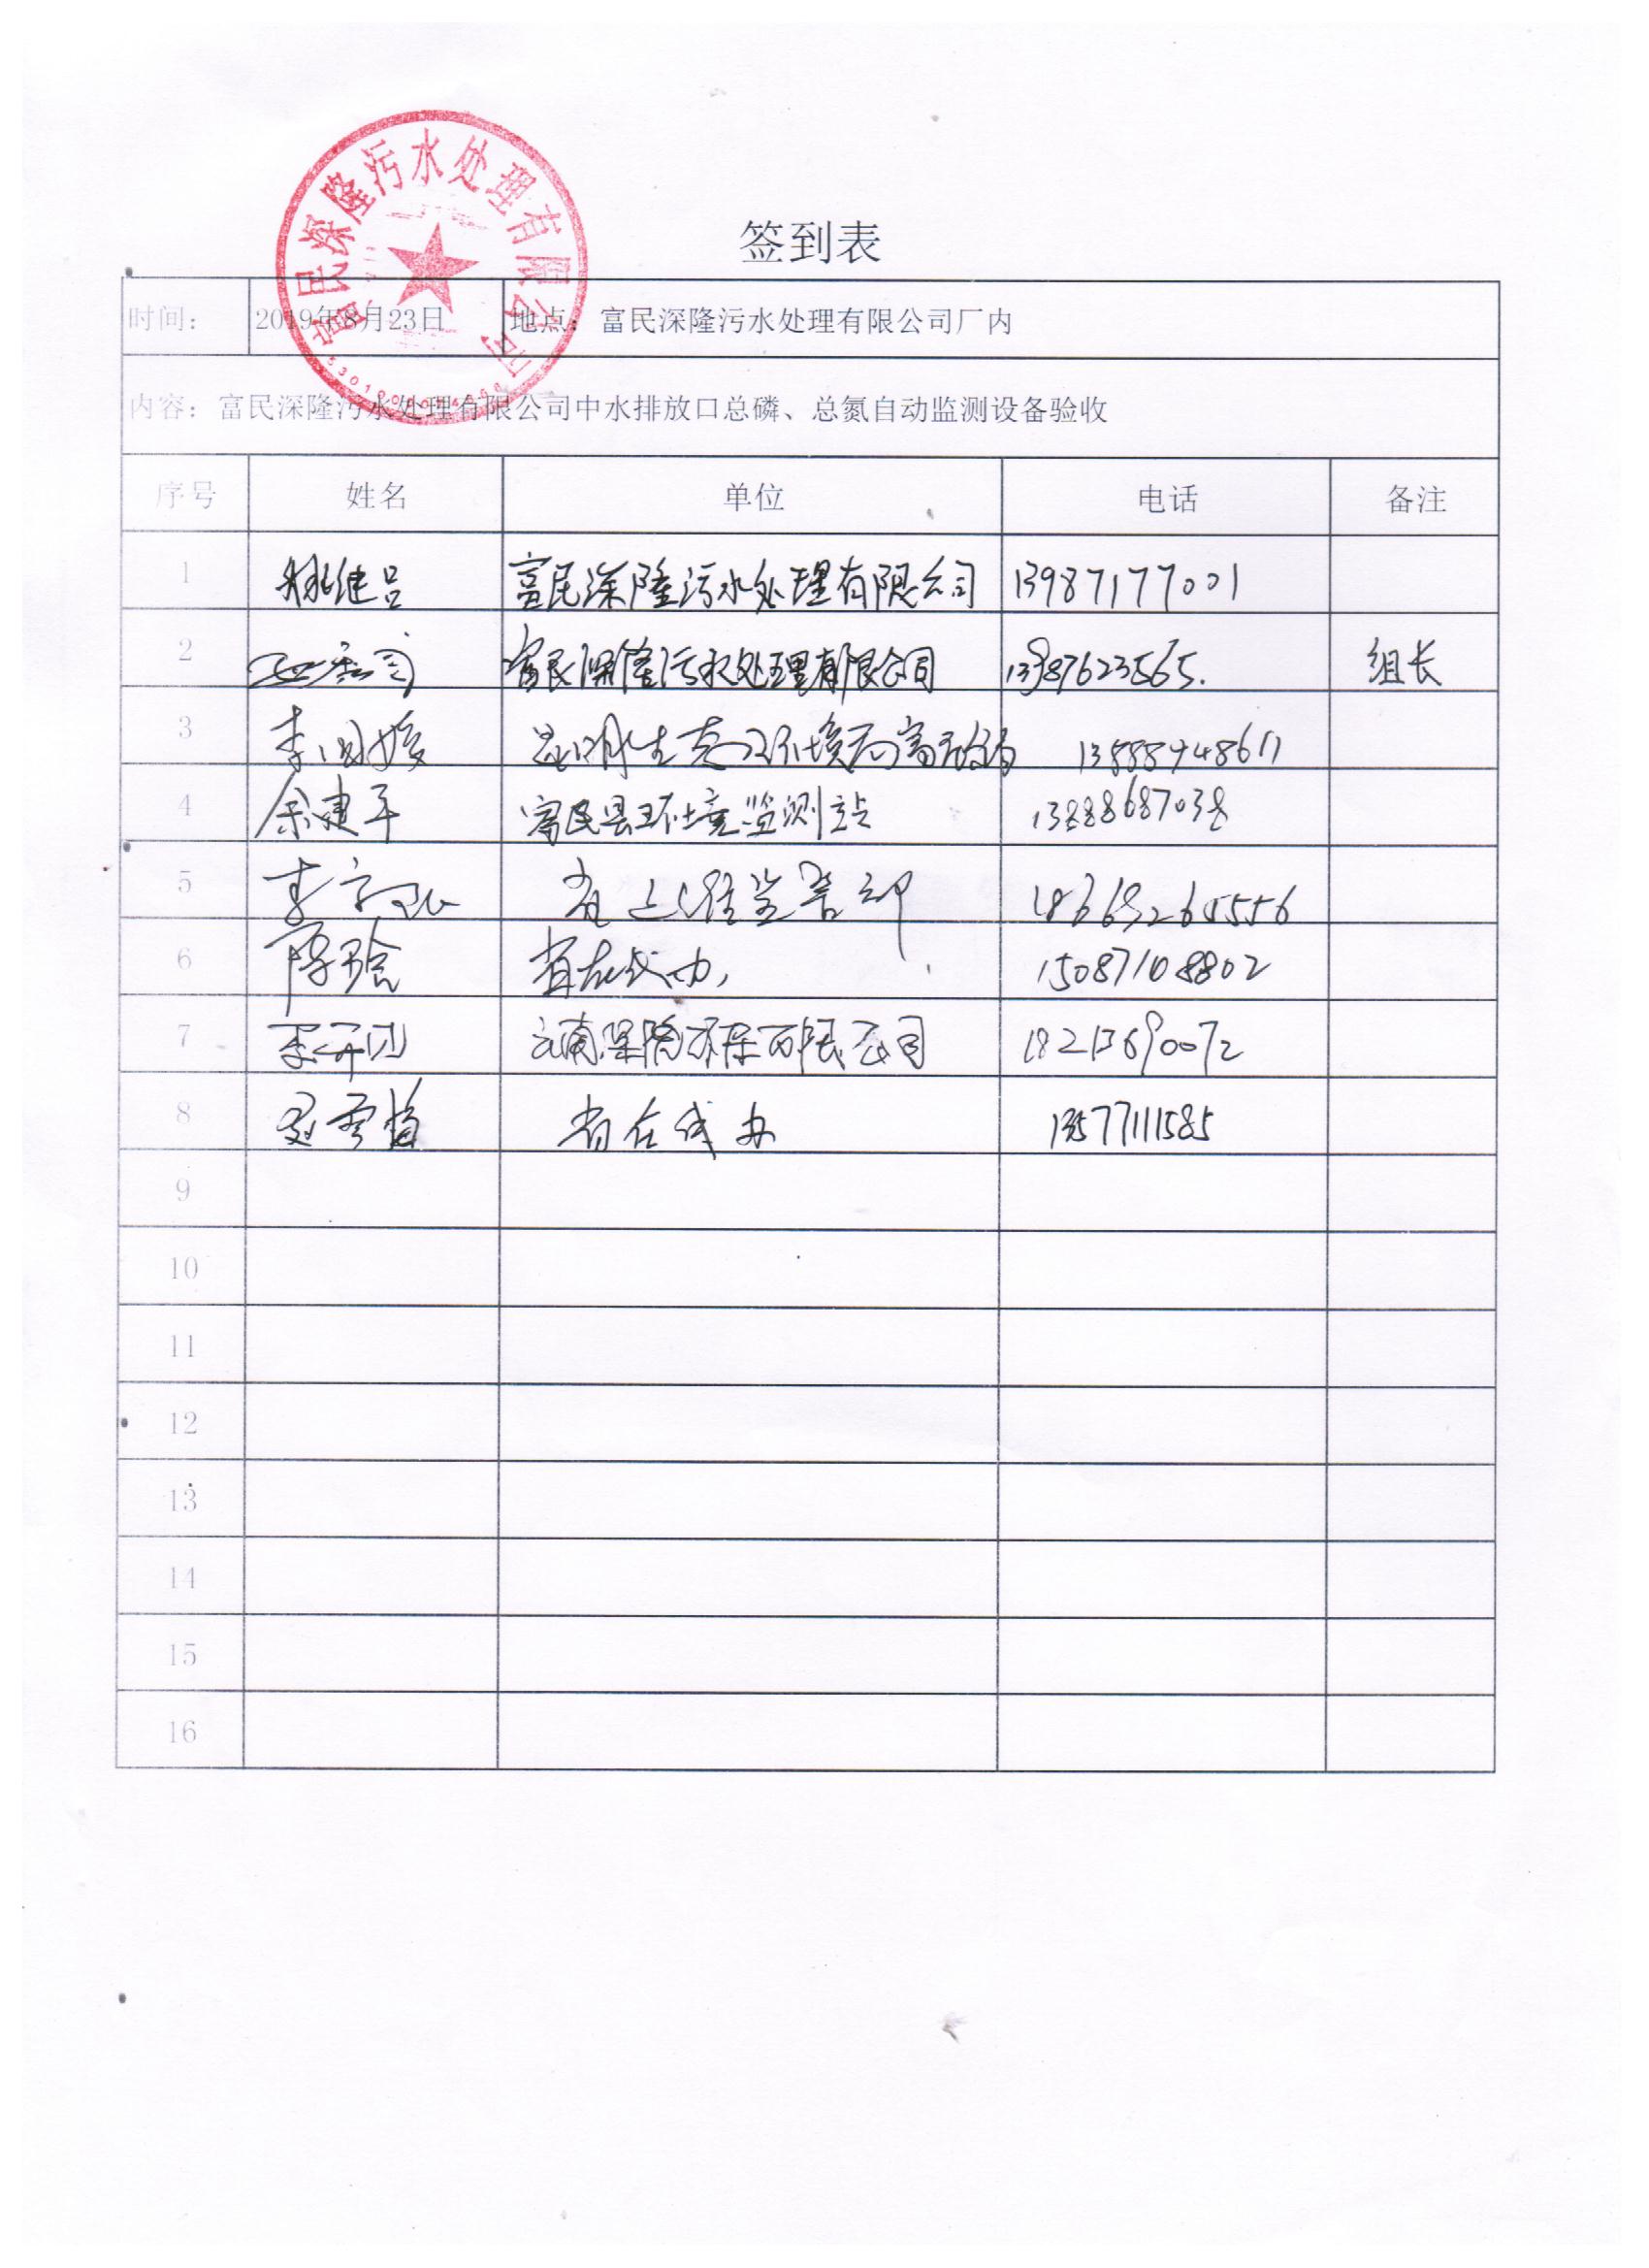 富民深隆污水处理有限公司
签到表
时间: 2019年8月23日 地点: 富民深隆污水处理有限公司厂内
内容: 富民深隆污水处理有限公司中水排放口总磷、总氮自动监测设备验收
序号 姓名 单位 电话 备注
1 姚继吕 富民深隆污水处理有限公司 13987177001
2 富民深隆污水处理有限公司 13987623565. 组长
3 李国媛 昆明生态环境局富民分局 13888948611
4 余建平 富民县环境监测站 13888687038
5 李 省
6 陈晗 省在线办, 15087108802
7 李开 云南深隆环保有限公司 18213690072
8 雪梅 省在线办 13577111585
9
10
11
12
13
14
15
16